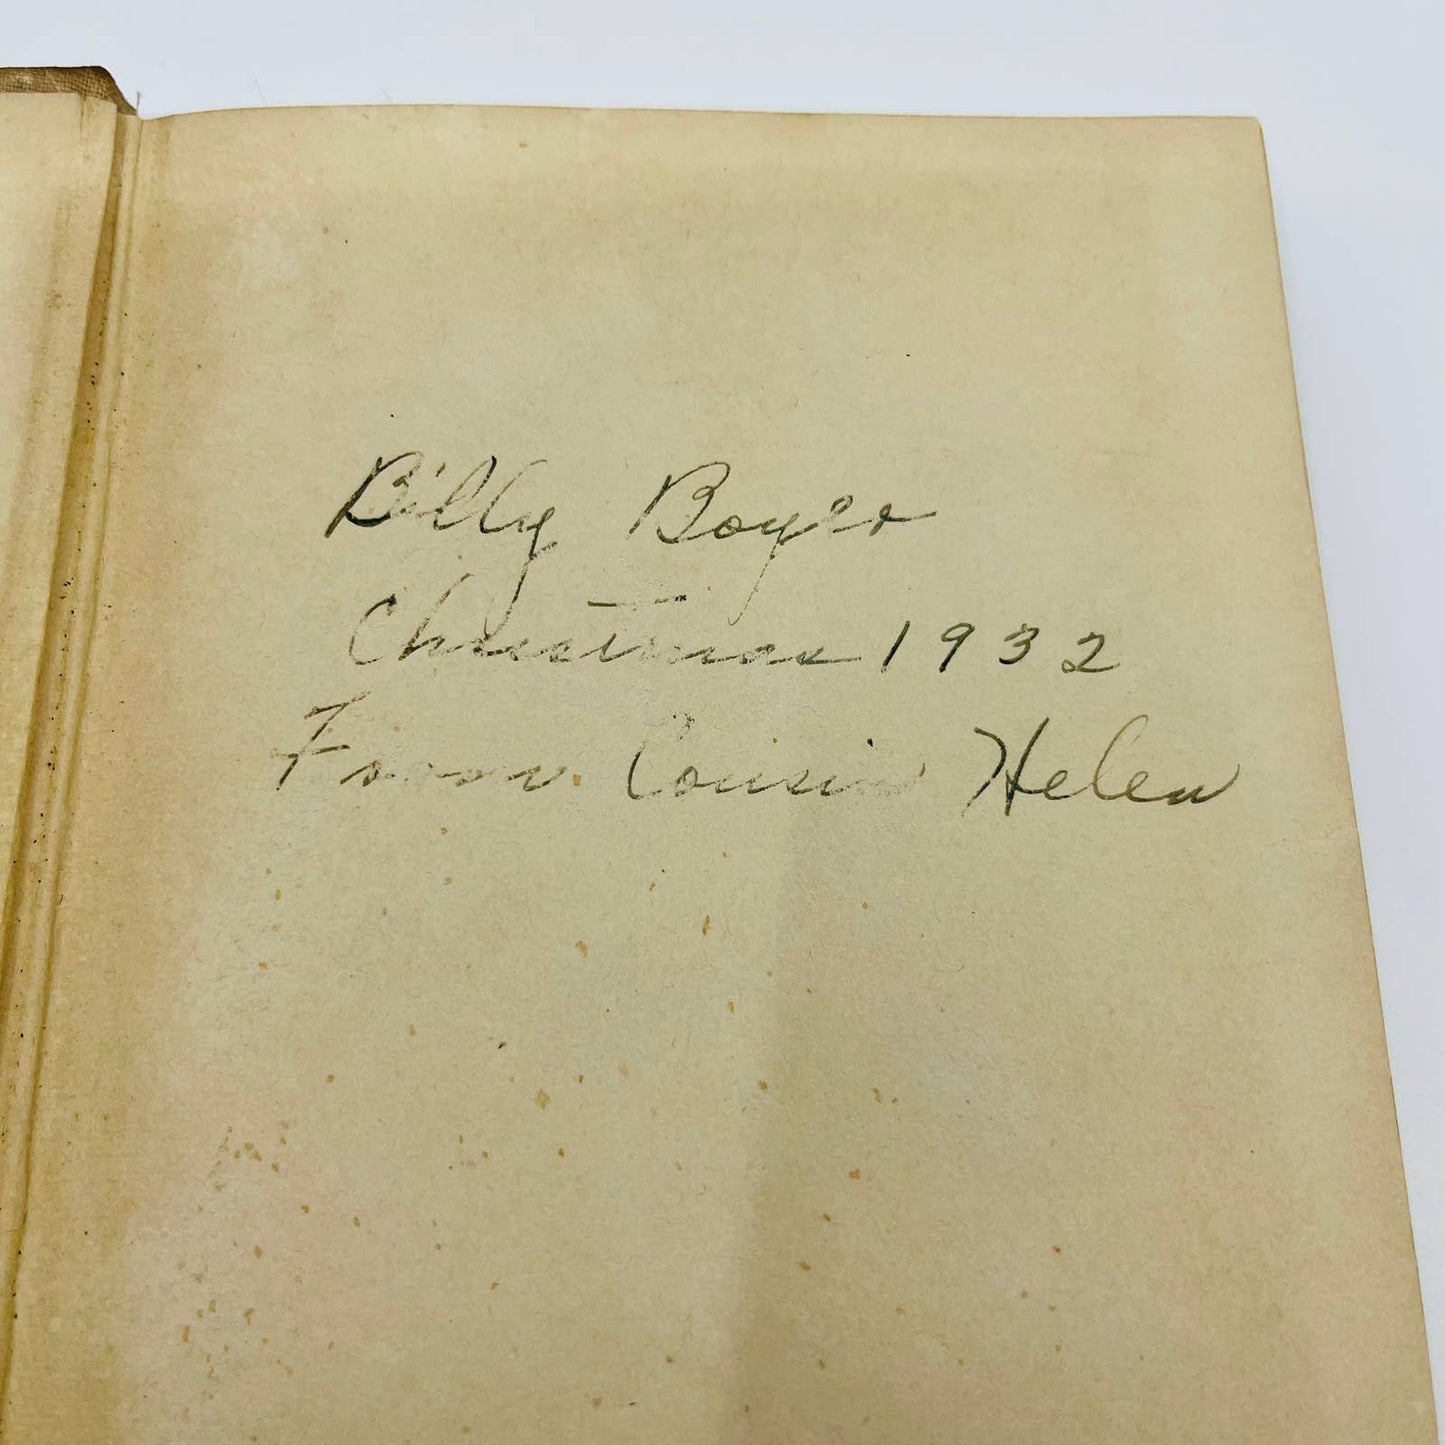 Billy Boyer
Christmas 1932
From Cousin Helen